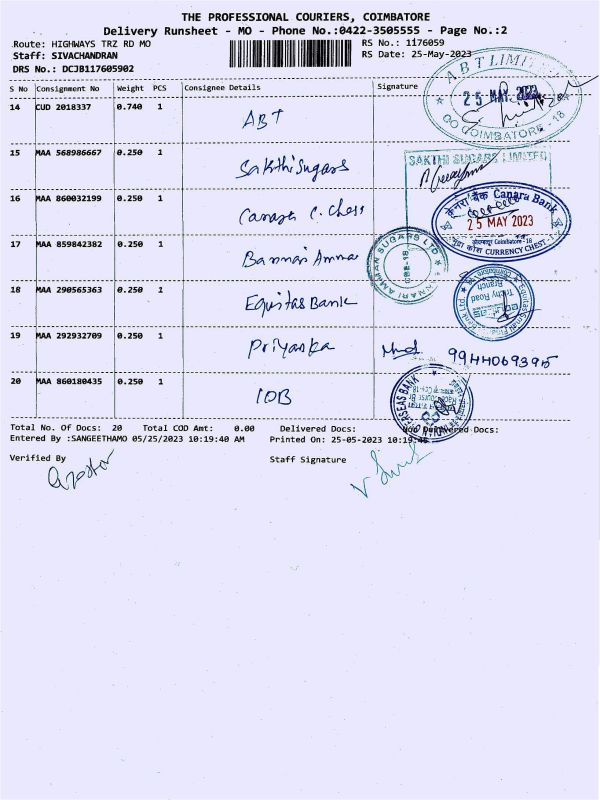 THE PROFESSIONAL COURIERS, COIMBATORE
Delivery Runsheet - MO - Phone No.:0422-3505555 - Page No.:2
Route: HIGHWAYS TRZ RD MO RS No.: 1176059
Staff: SIVACHANDRAN RS Date: 25-May-2023
DRS No.: DCJB117605902
S No Consignment No Weight PCS Consignee Details Signature
14 CUD 2018337 0.740 1 ABT
ABT LIMITED
25 MAY 2023
COIMBATORE - 18
15 MAA 568986667 0.250 1 Sakthi Sugars
SAKTHI SUGARS LIMITED
16 MAA 860032199 0.250 1 Canara C. Chest
केनरा बैंक Canara Bank
25 MAY 2023
Coimbatore - 18
मुद्रा कोश CURRENCY CHEST - 1
17 MAA 859842382 0.250 1 Bannari Amman
BANNARI AMMAN SUGARS LTD
CBE-18
18 MAA 290565363 0.250 1 Equitas Bank
Equitas Small Finance Bank
Trichy Road
Branch
19 MAA 292932709 0.250 1 Priyanka 9944069395
20 MAA 860180435 0.250 1 IOB
OVERSEAS BANK
Total No. Of Docs: 20 Total COD Amt: 0.00 Delivered Docs: Delivered Docs:
Entered By :SANGEETHAMO 05/25/2023 10:19:40 AM Printed On: 25-05-2023 10:19:45
Verified By Staff Signature